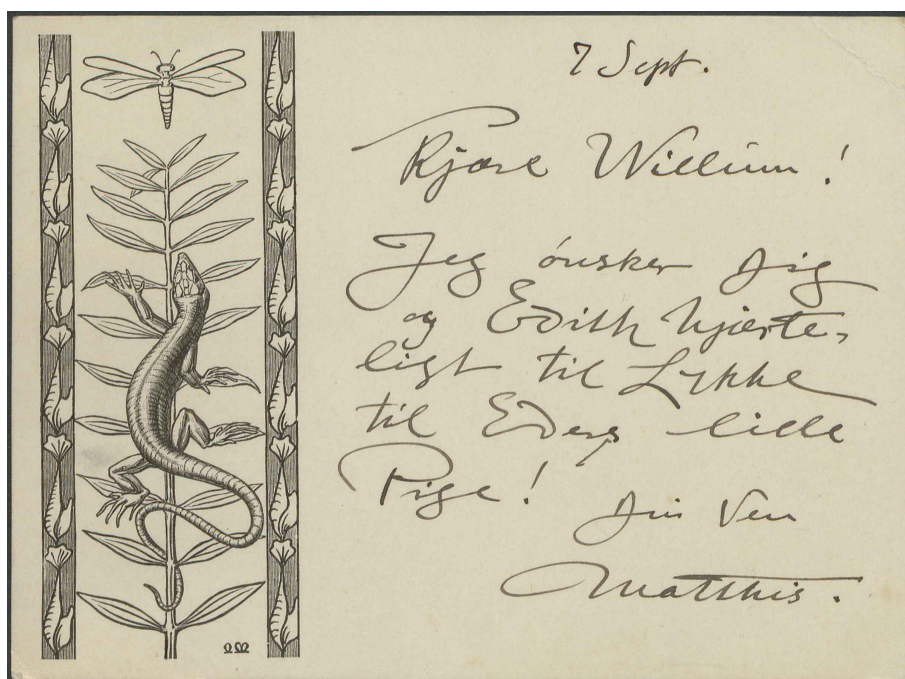 7 Sept.
Kjære William!
Jeg ønsker Dig
og Edith hjerte-
ligst til Lykke
til Eders lille
Pige!
Din Ven
Matthis.